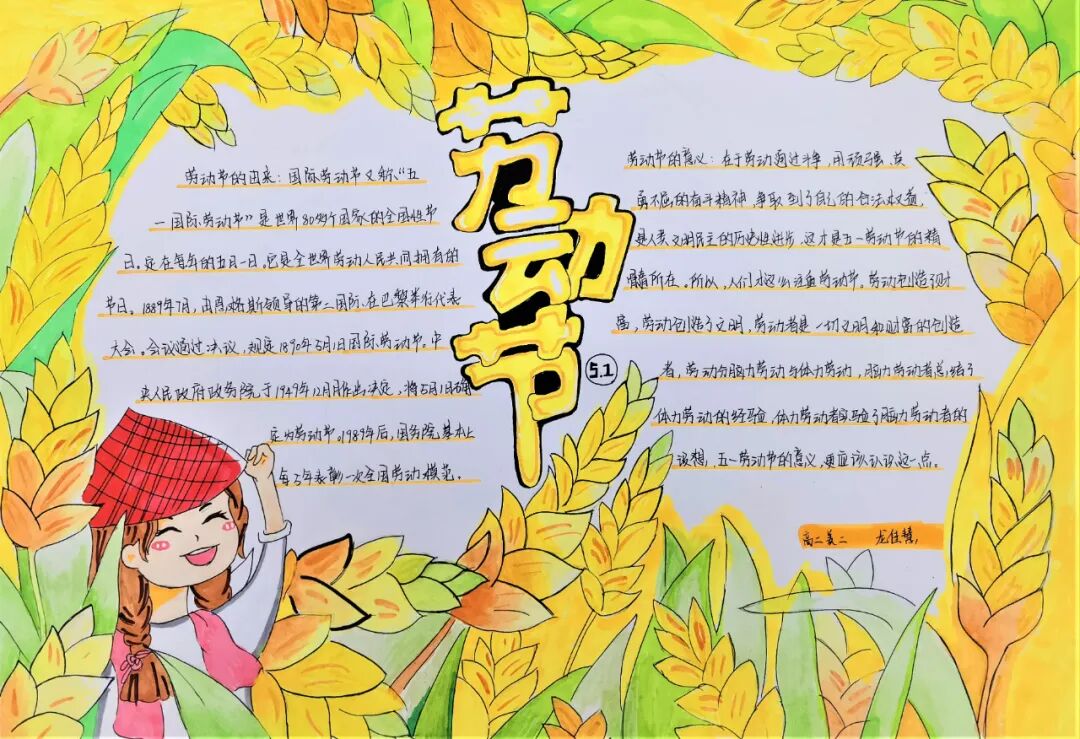 劳动节
5.1
劳动节的由来：国际劳动节又称“五
一国际劳动节”是世界80多个国家的全国性节
日。定在每年的五月一日。它是全世界劳动人民共同拥有的
节日。1889年7月，由恩格斯领导的第二国际，在巴黎举行代表
大会。会议通过决议，规定1890年5月1日国际劳动节。中
央人民政府政务院于1949年12月作出决定，将5月1日确
定为劳动节。1989年后，国务院基本上
每5年表彰一次全国劳动模范。
劳动节的意义：在于劳动通过斗争，用顽强、英
勇不屈的奋斗精神，争取到了自己的合法权益，
是人类文明民主的历史性进步，这才是五一劳动节的精
髓所在。所以，人们才这么注重劳动节。劳动创造了财
富，劳动创造了文明，劳动者是一切文明和财富的创造
者，劳动分脑力劳动与体力劳动，脑力劳动者总结了
体力劳动的经验，体力劳动者实验了脑力劳动者的
设想，五一劳动节的意义，更应该认识这一点。
高二美二 龙佳慧